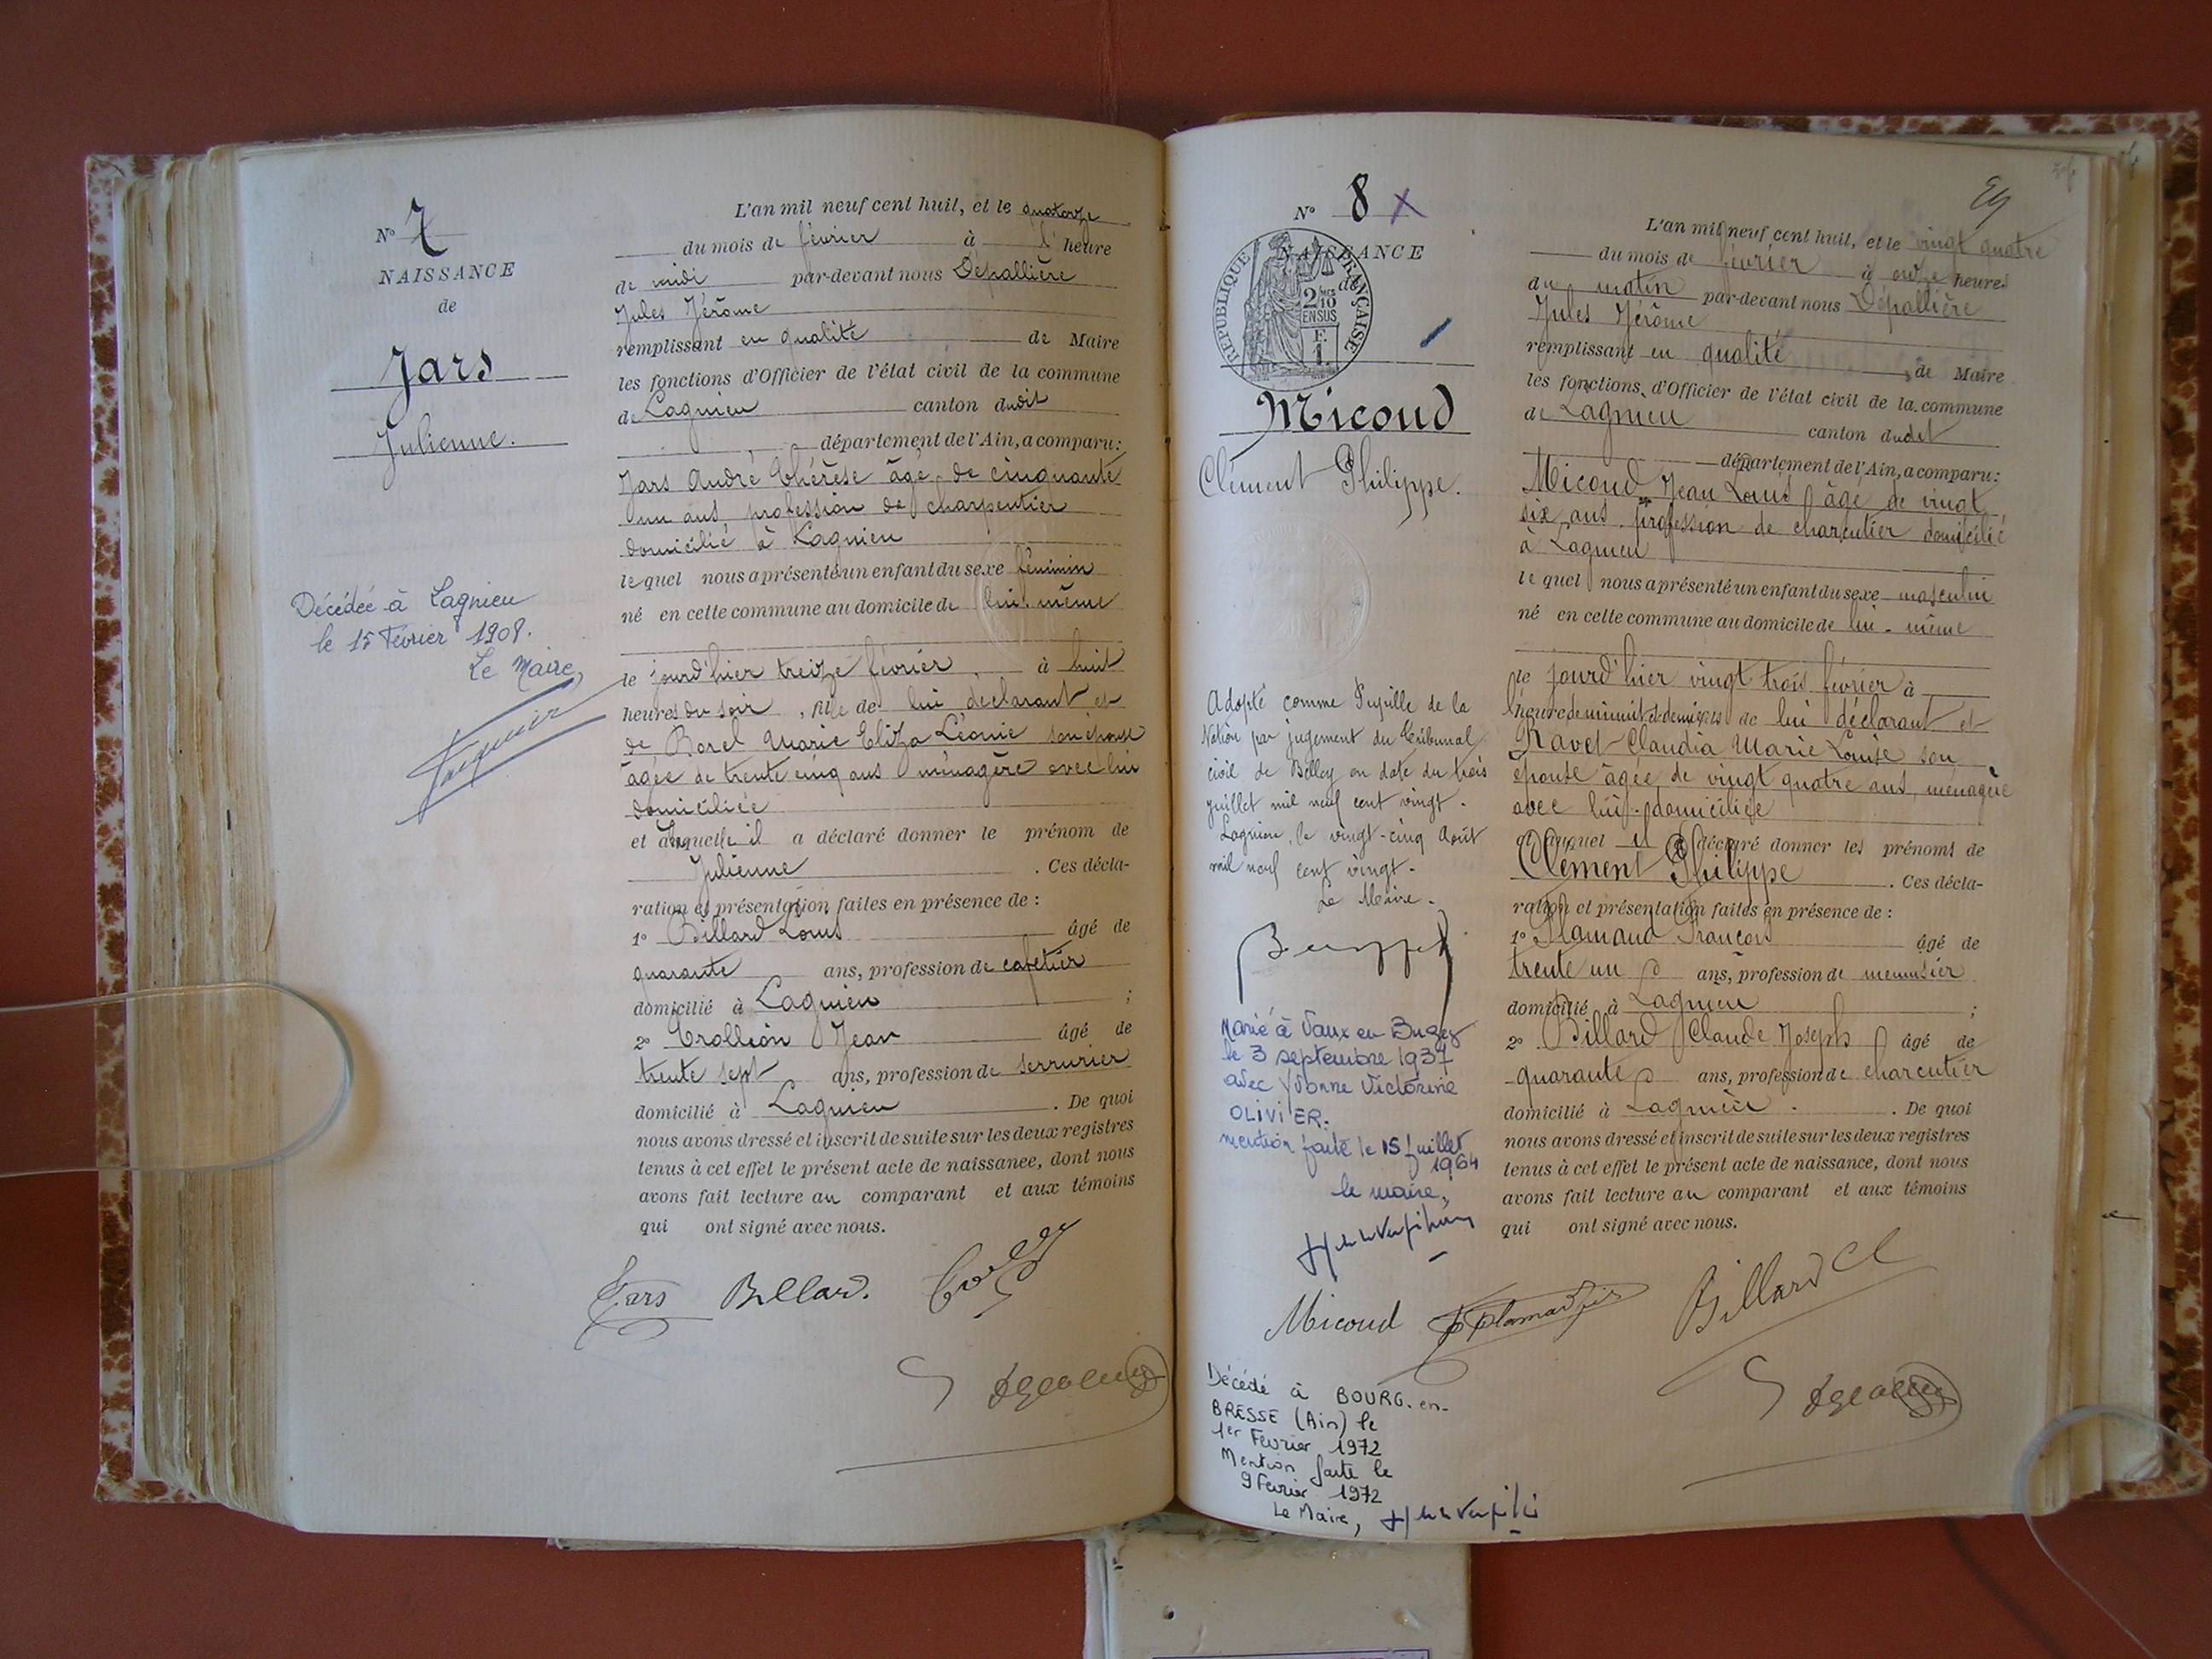 N° 7
NAISSANCE
de
Jars
Julienne.
Décédée à Lagnieu
le 15 Février 1908.
Le Maire,
L'an mil neuf cent huit, et le quatorze
du mois de février à l' heure
de midi par-devant nous Dépallière
Jules Jérôme
remplissant en qualité de Maire
les fonctions d'Officier de l'état civil de la commune
de Lagnieu canton dudit
département de l'Ain, a comparu:
Jars André Thérèse âgé de cinquante
un ans profession de charpentier
domicilié à Lagnieu
lequel nous a présenté un enfant du sexe féminin
né en cette commune au domicile de lui-même
le jourd'hier treize février à huit
heures du soir, fille de lui déclarant et
de Borel Marie Eliza Léonie son épouse
âgée de trente cinq ans ménagère avec lui
domiciliée
et à laquelle il a déclaré donner le prénom de
Julienne. Ces décla-
ration et présentation faites en présence de :
1° Billard Louis âgé de
quarante ans, profession de cafetier
domicilié à Lagnieu ;
2° Trollion Jean âgé de
trente sept ans, profession de serrurier
domicilié à Lagnieu. De quoi
nous avons dressé et inscrit de suite sur les deux registres
tenus à cet effet le présent acte de naissance, dont nous
avons fait lecture au comparant et aux témoins
qui ont signé avec nous.
Jars Billard.
N° 8 X
NAISSANCE
de
RÉPUBLIQUE FRANÇAISE
2/10
EN SUS
F.
1.
Micoud
Clément Philippe.
Adopté comme Pupille de la
Nation par jugement du Tribunal
civil de Belley en date du trois
juillet mil neuf cent vingt.
Lagnieu, le vingt-cinq Août
mil neuf cent vingt.
Le Maire.
Marié à Vaux en Bugey
le 3 septembre 1937
avec Yvonne Victorine
OLIVIER.
mention faite le 15 juillet
1964
le maire,
L'an mil neuf cent huit, et le vingt quatre
du mois de février à onze heures
du matin par-devant nous Dépallière
Jules Jérôme
remplissant en qualité de Maire
les fonctions d'Officier de l'état civil de la commune
de Lagnieu canton dudit
département de l'Ain, a comparu:
Micoud Jean Louis âgé de vingt
six ans profession de charcutier domicilié
à Lagnieu
lequel nous a présenté un enfant du sexe masculin
né en cette commune au domicile de lui-même
le jourd'hier vingt trois février à
l'heure de minuit et demie fils de lui déclarant et
Ravet Claudia Marie Louise son
épouse âgée de vingt quatre ans, ménagère
avec lui domiciliée
et auquel il a déclaré donner les prénoms de
Clément Philippe. Ces décla-
ration et présentation faites en présence de :
1° Plamand François âgé de
trente un ans, profession de menuisier
domicilié à Lagnieu ;
2° Billard Claude Joseph âgé de
quarante ans, profession de charcutier
domicilié à Lagnieu. De quoi
nous avons dressé et inscrit de suite sur les deux registres
tenus à cet effet le présent acte de naissance, dont nous
avons fait lecture au comparant et aux témoins
qui ont signé avec nous.
Micoud Billard Cl
Décédé à BOURG-en-
BRESSE (Ain) le
1er Février 1972
Mention faite le
9 Février 1972
Le Maire,